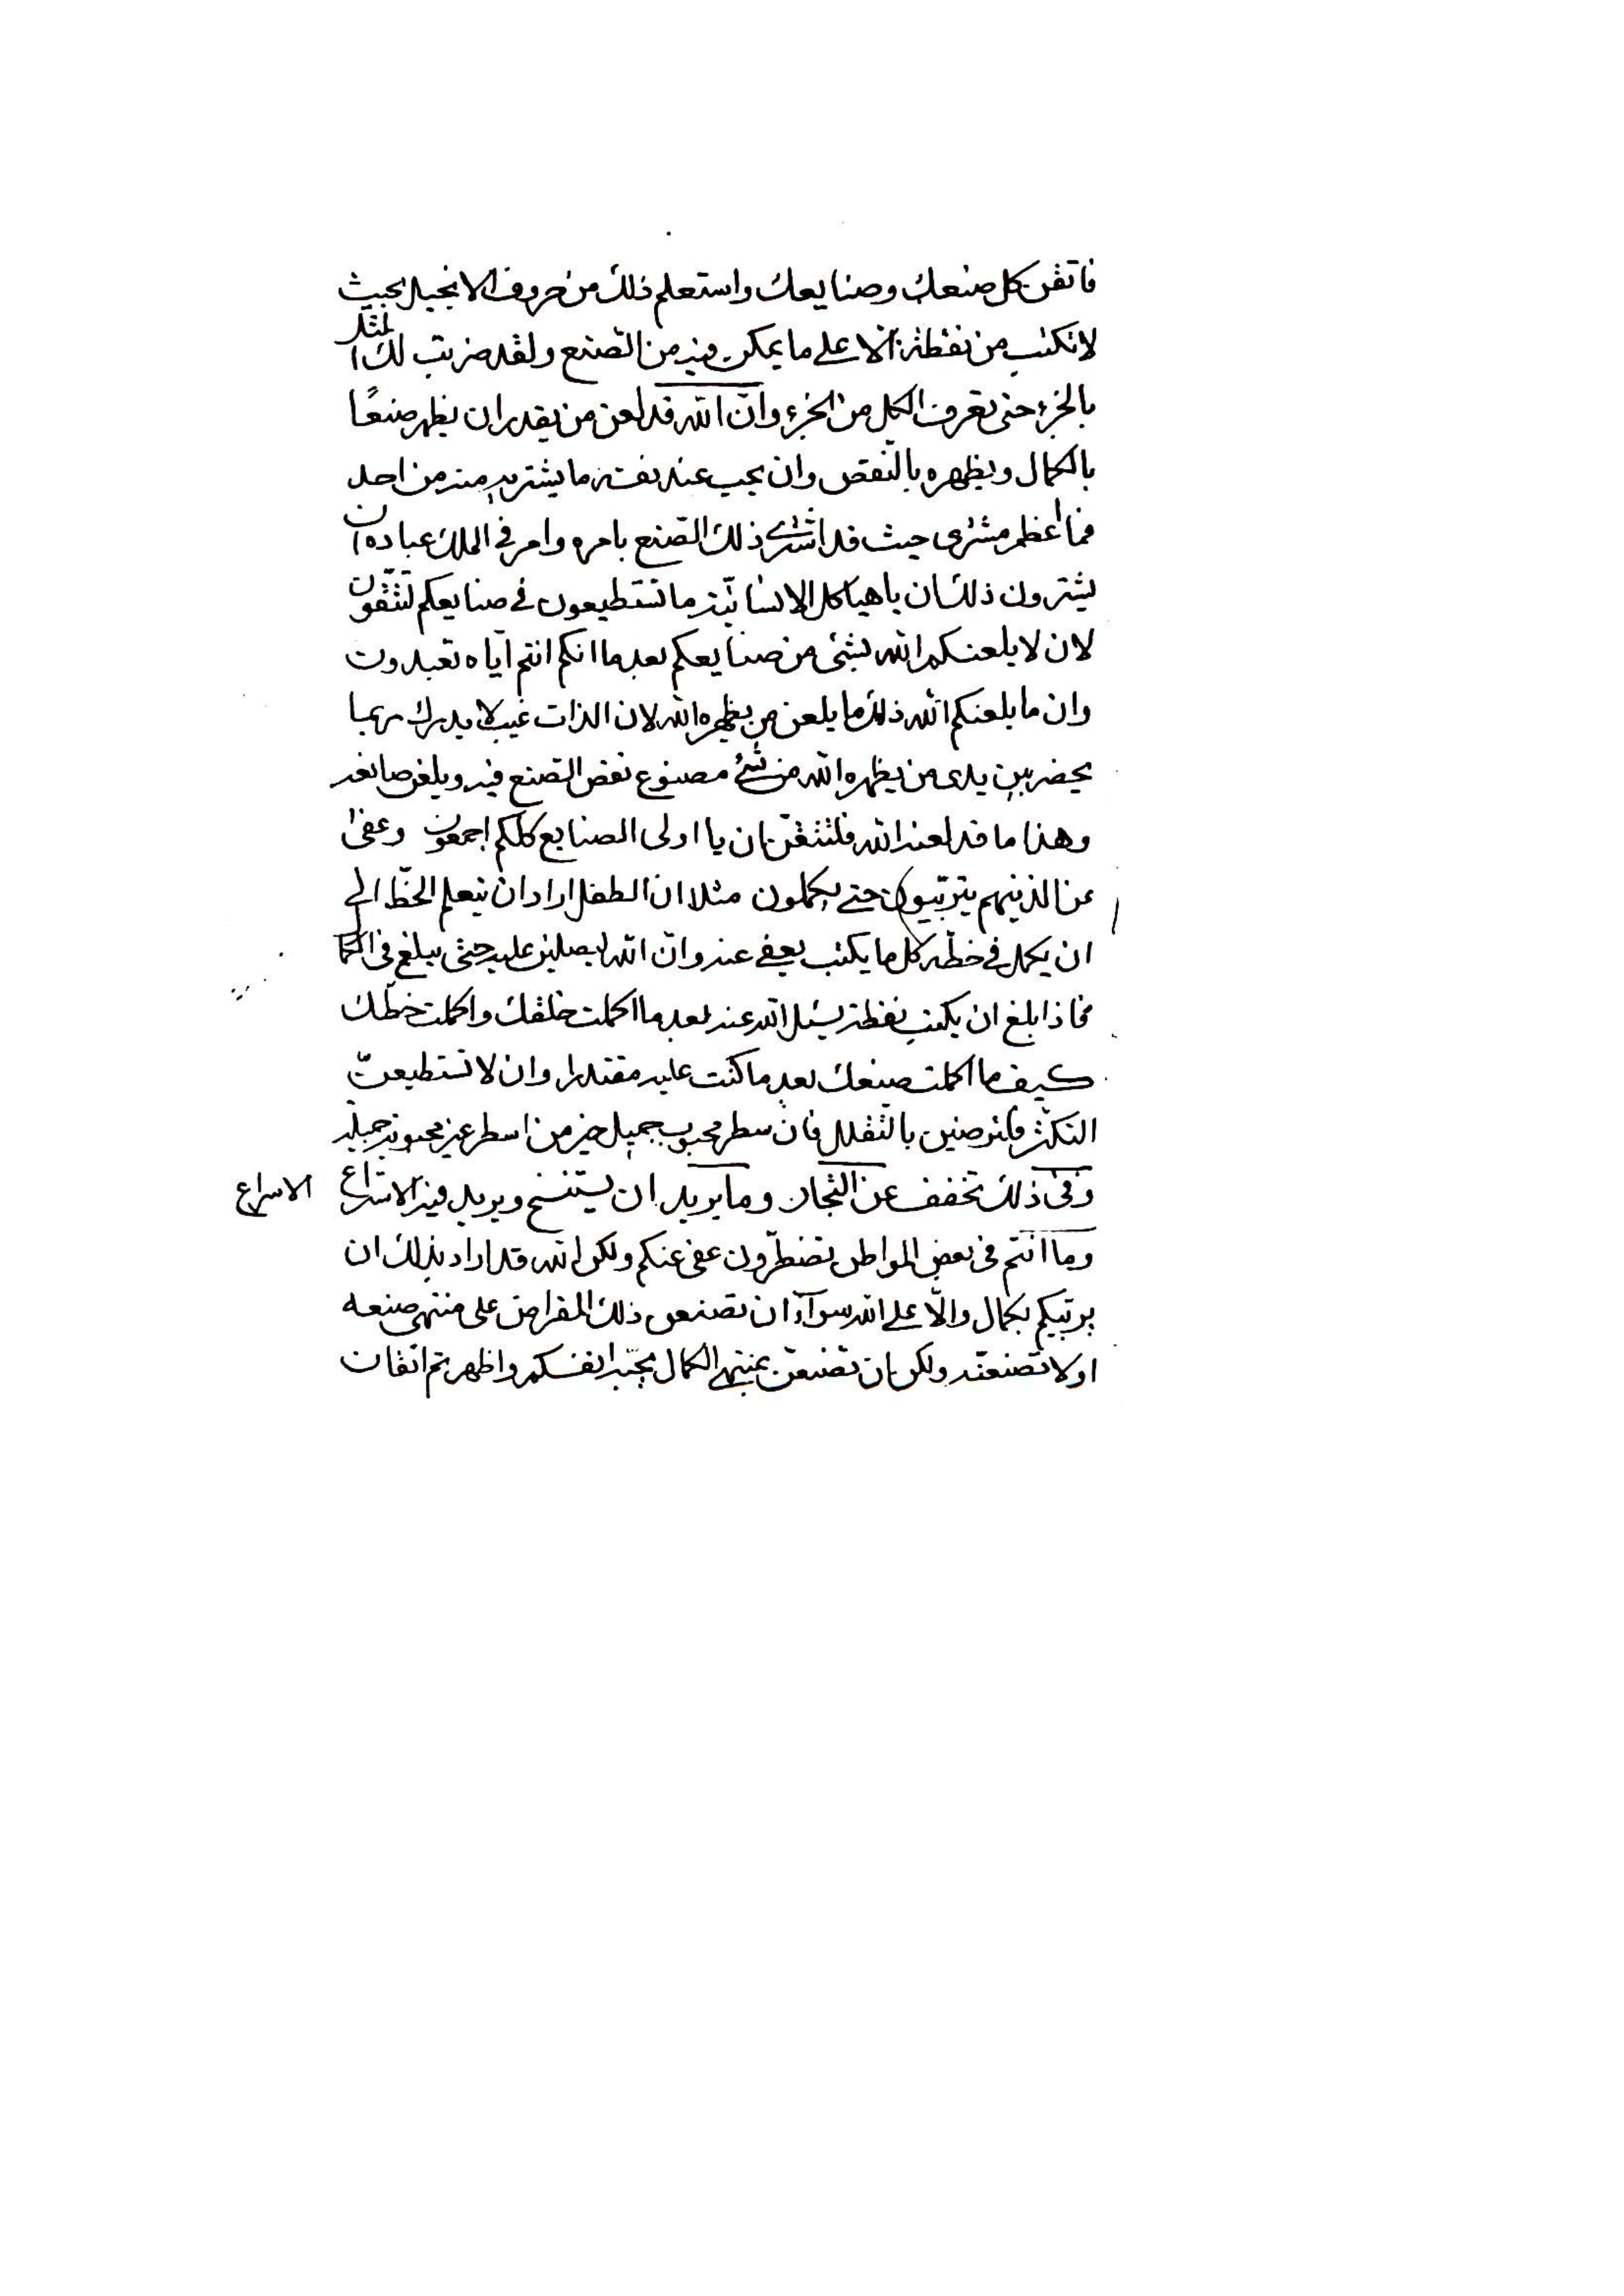 فاتقن كل صنعك وصنايعك واستعلم ذلك من حروف الانجيل بحيث
لا تكتب من نقطة الا على ما يمكن فيه من الصّنع ولقد ضربت لك المثل
بالجزء حتى تعرف الكل من الجزء وانّ الله قد لعن من يقدر ان يظهر صنعًا
بالكمال ويظهره بالنّقص وان يحب عند نفسه ما يشتريه منه من احد
فما اعظم مشترى حيث قد اشترى ذلك الصّنع بامره وامر فى الملك عباده ان
يشترون ذلك ان يا هياكل الانسانيّة ما تستطيعون فى صنايعكم لتتّقون
لان لا يلعنكم الله بشئ من صنايعكم بعد ما انكم انتم ايّاه تعبدون
وان ما يلعنكم الله ذلك ما يلعن من يظهره الله لان الذات غيب لا يدرك ربما
يحضر بين يدى من يظهره الله من شئ مصنوع نقض الصّنع فيه ويلعن صانعه
وهذا ما قد لعنه الله فلتتقنّ ان يا اولى الصنايع كلكم اجمعون وعفى
عن الذينهم يتربّيون حتى يكملون مثلا ان الطفل اراد ان يتعلم الخطّ الى
ان يكمل فى خطّه كل ما يكتب يعفى عنه وانّ الله ليصلين عليه حتى يبلغ فى الكما
فاذا بلغ ان يكتب نقطة يسئل الله عنه بعد ما اكملت خلقك واكملت خطّك
كيف ما اكملت صنعك بعد ما كنت عليه مقتدرا وان لا تستطيعنّ
التكثر فلترضين بالتقلل فان سطر محبوب جميل خير من اسطر غير محبوبة جميلة
وفى ذلك تخفف عن التجار وما يريد ان يستنسخ ويريد فيه الاستراع الاسراع
وما انتم فى بعض المواطن تضطرّون عفى عنكم ولكن الله قد اراد بذلك ان
يربّيكم بكمال والّا على الله سوآء ان تصنعن ذلك المقراض على منتهى صنعه
او لا تصنعنّه ولكن ان تصنعنّ بمنتهى الكمال يحبّه انفسكم واظهر ثم اتقان